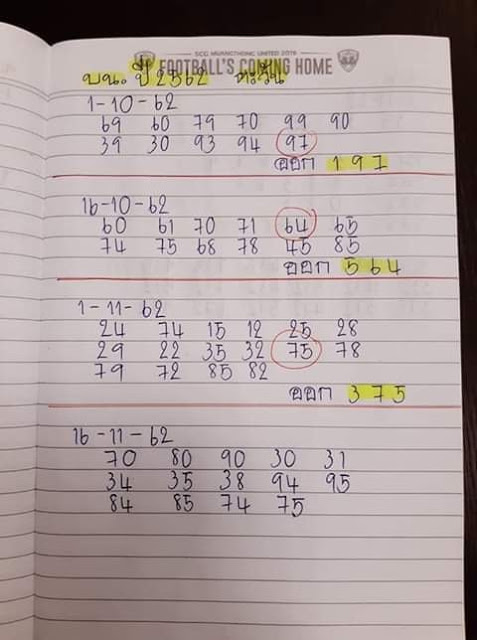 SCG MUANGTHONG UNITED 2018
FOOTBALL'S COMING HOME
บน. ปี 2562
1-10-62
69 60 79 70 99 90
39 30 93 94 97
ออก 197
16-10-62
60 61 70 71 64 65
74 75 68 78 45 85
ออก 564
1-11-62
24 74 15 12 25 28
29 22 35 32 75 78
79 72 85 82
ออก 375
16-11-62
70 80 90 30 31
34 35 38 94 95
84 85 74 75